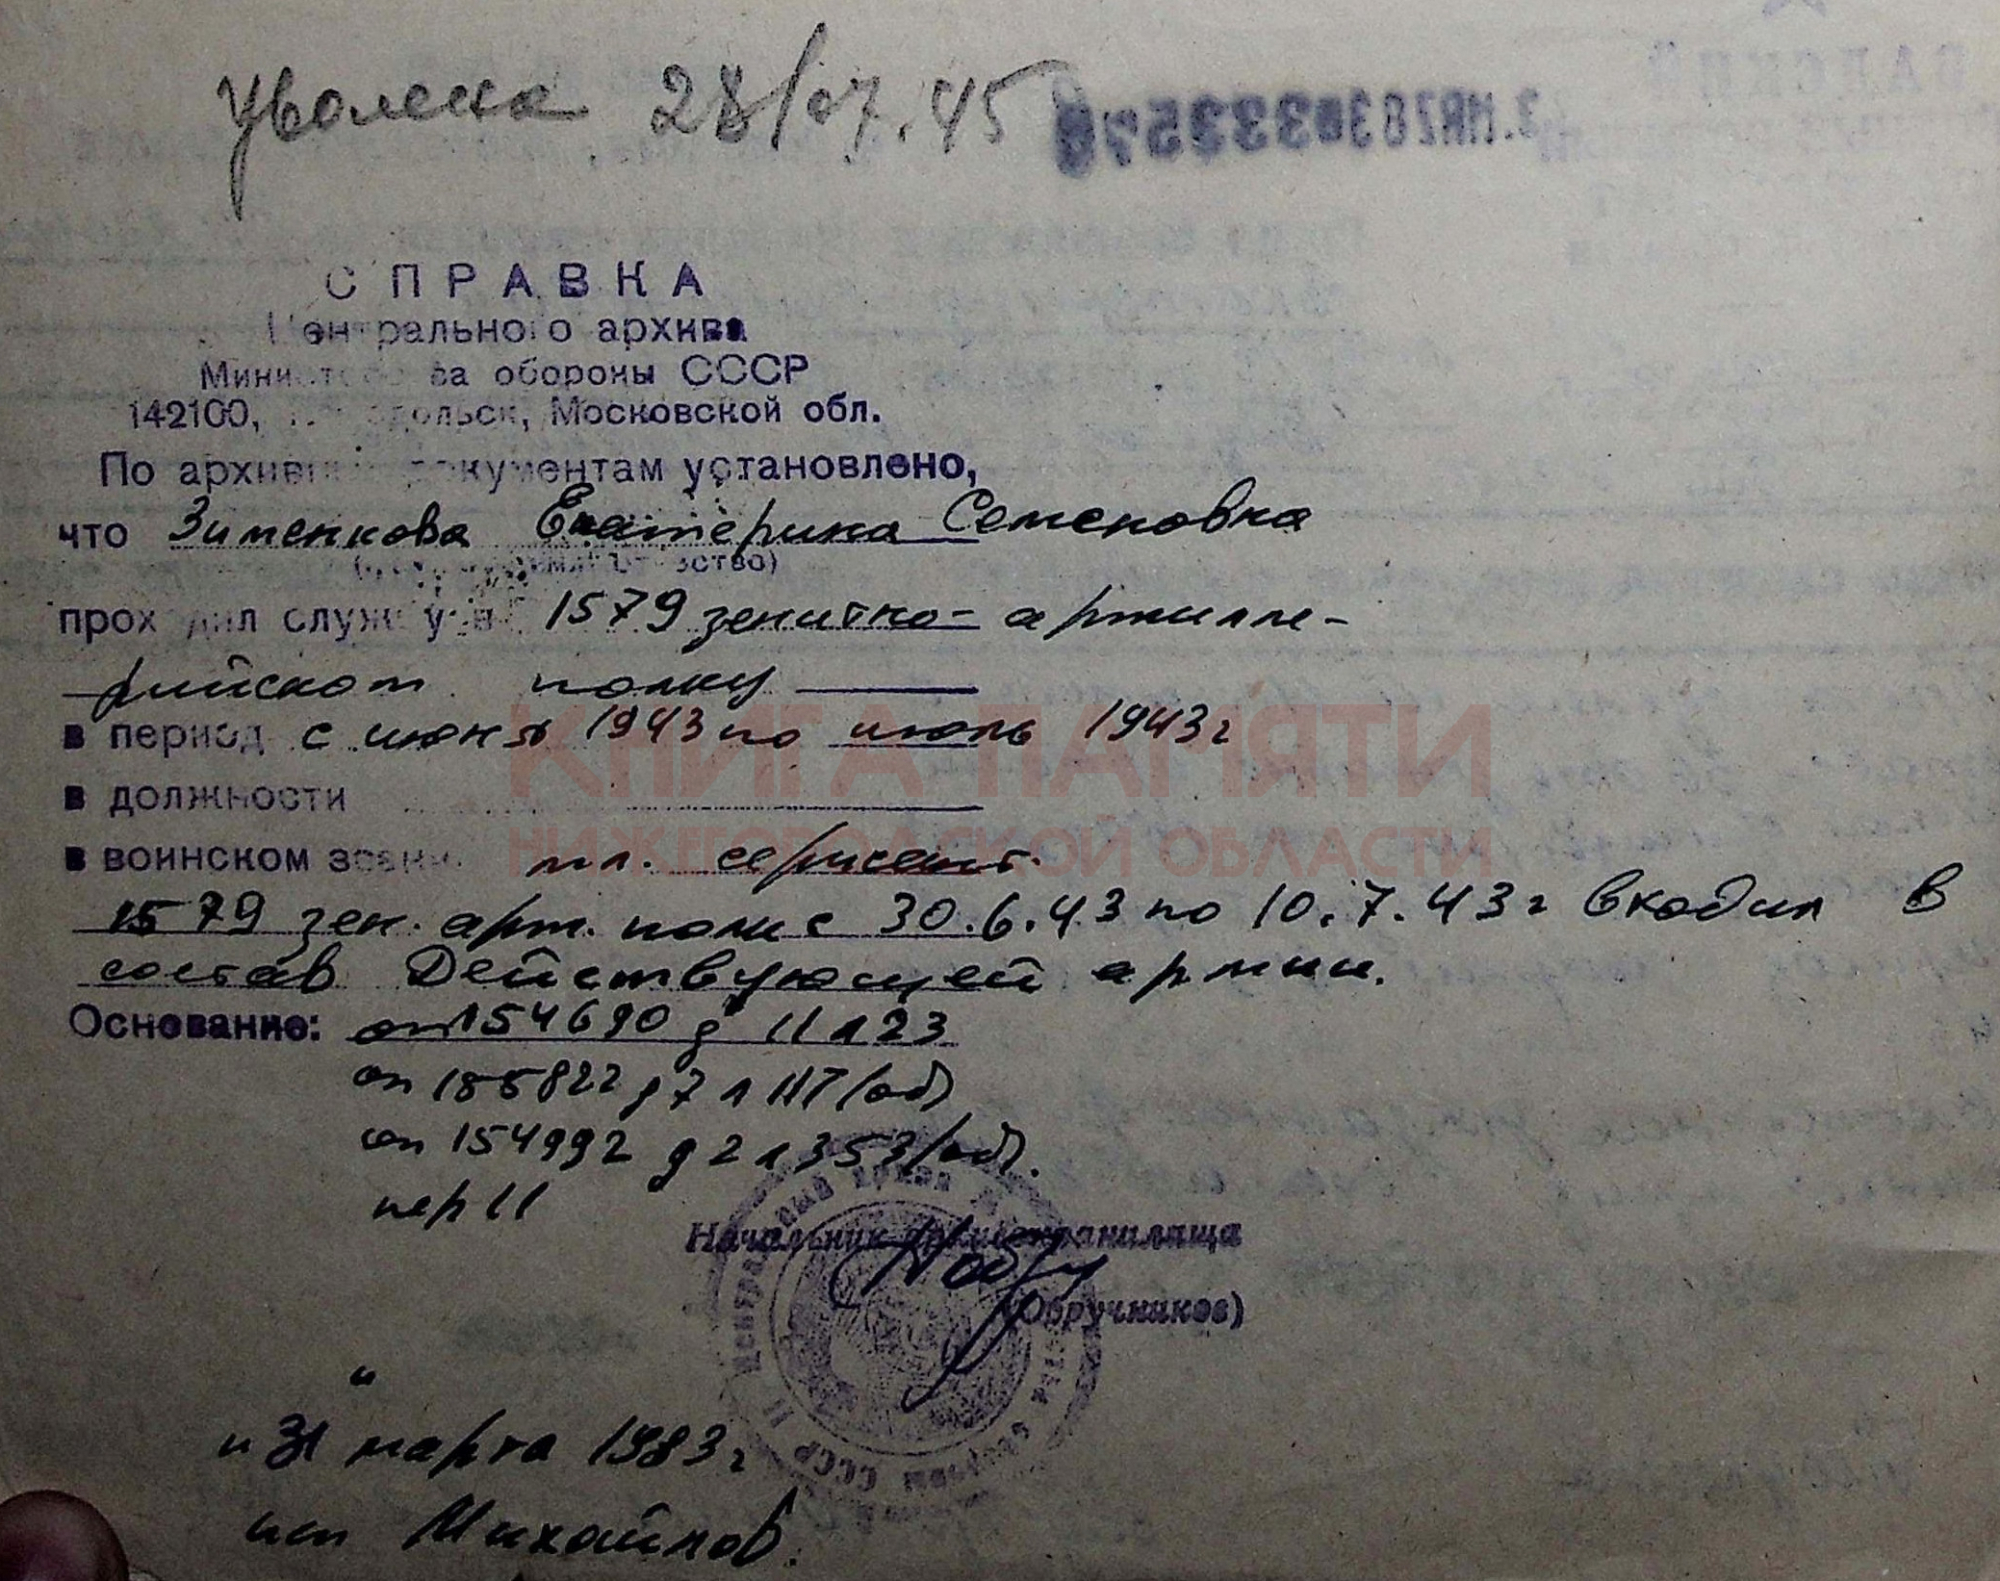 уволена 28/07.45
СПРАВКА
Центрального архива
Министерства обороны СССР
142100, г. Подольск, Московской обл.
По архивным документам установлено,
что Зименкова Екатерина Семеновна
(фамилия, имя, отчество)
проходил службу в 1579 зенитно-артилле-
рийском полку
в период с июня 1943 по июль 1943 г
в должности
в воинском звании мл. сержант.
1579 зен. арт. полк с 30.6.43 по 10.7.43 г входил в
состав Действующей армии.
Основание: оп 154690 д 11 л 23
оп 185822 д 7 л 117 (об)
оп 154992 д 2 л 353 (об).
пер 11
Начальник архивохранилища
(Обручников)
" 31 марта 1983 г
исп Михайлов.
КНИГА ПАМЯТИ
НИЖЕГОРОДСКОЙ ОБЛАСТИ